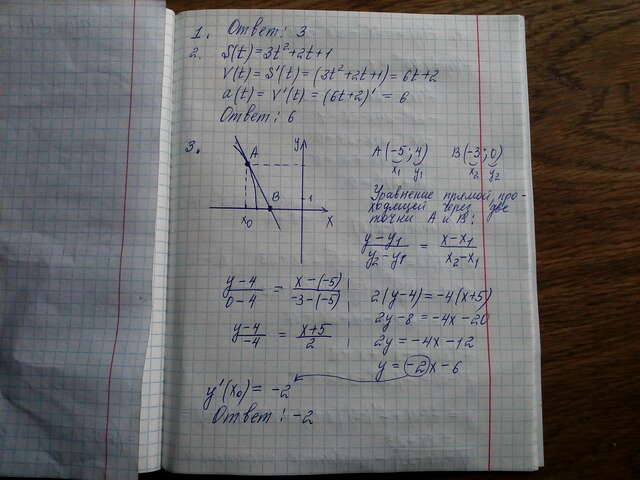 1. Ответ: 3
2. S(t)=3t²+2t+1
V(t)=S'(t)=(3t²+2t+1)=6t+2
a(t)=V'(t)=(6t+2)'=6
Ответ: 6
3.
A
B
y
x
x₀
1
A(-5; 4) B(-3; 0)
x₁ y₁ x₂ y₂
Уравнение прямой, про-
ходящей через две
точки A и B:
(y-y₁)/(y₂-y₁) = (x-x₁)/(x₂-x₁)
(y-4)/(0-4) = (x-(-5))/(-3-(-5))
(y-4)/(-4) = (x+5)/2
2(y-4)=-4(x+5)
2y-8=-4x-20
2y=-4x-12
y=-2x-6
y'(x₀)=-2
Ответ: -2